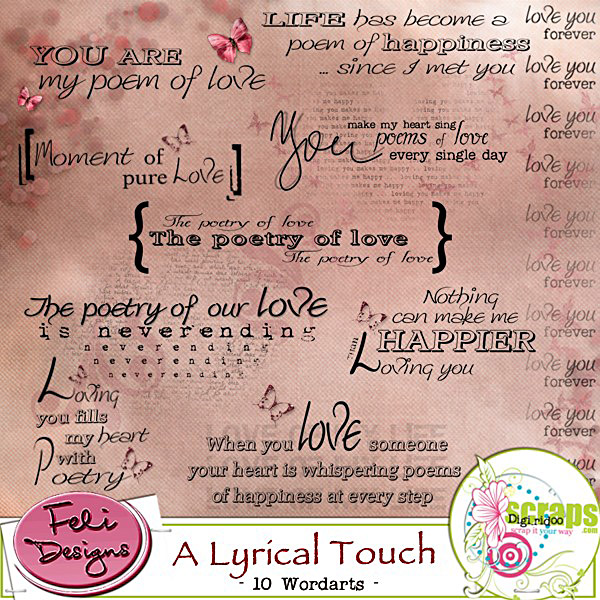 LIFE has become a
poem of happiness
... since I met you
YOU ARE
my poem of love
[Moment of
pure Love]
You make my heart sing
poems of love
every single day
loving you makes
me happy
{The poetry of love
The poetry of love
The poetry of love}
The poetry of our love
is neverending
neverending
neverending
neverending
Nothing
can make me
HAPPIER
THEN
Loving you
Loving
you fills
my heart
with
Poetry
When you love someone
your heart is whispering poems
of happiness at every step
love you
forever
love you
forever
love you
forever
love you
forever
love you
forever
love you
forever
love you
forever
love you
forever
love you
forever
Feli
Designs
A Lyrical Touch
- 10 Wordarts -
scraps
Digiridoo
.com
scrap it your way